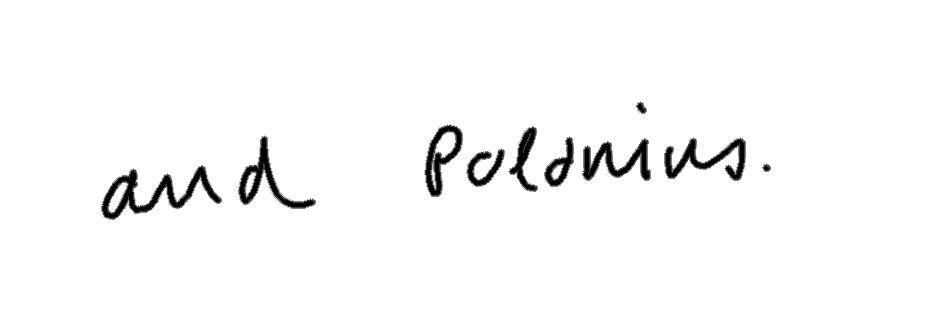 and Polonius.